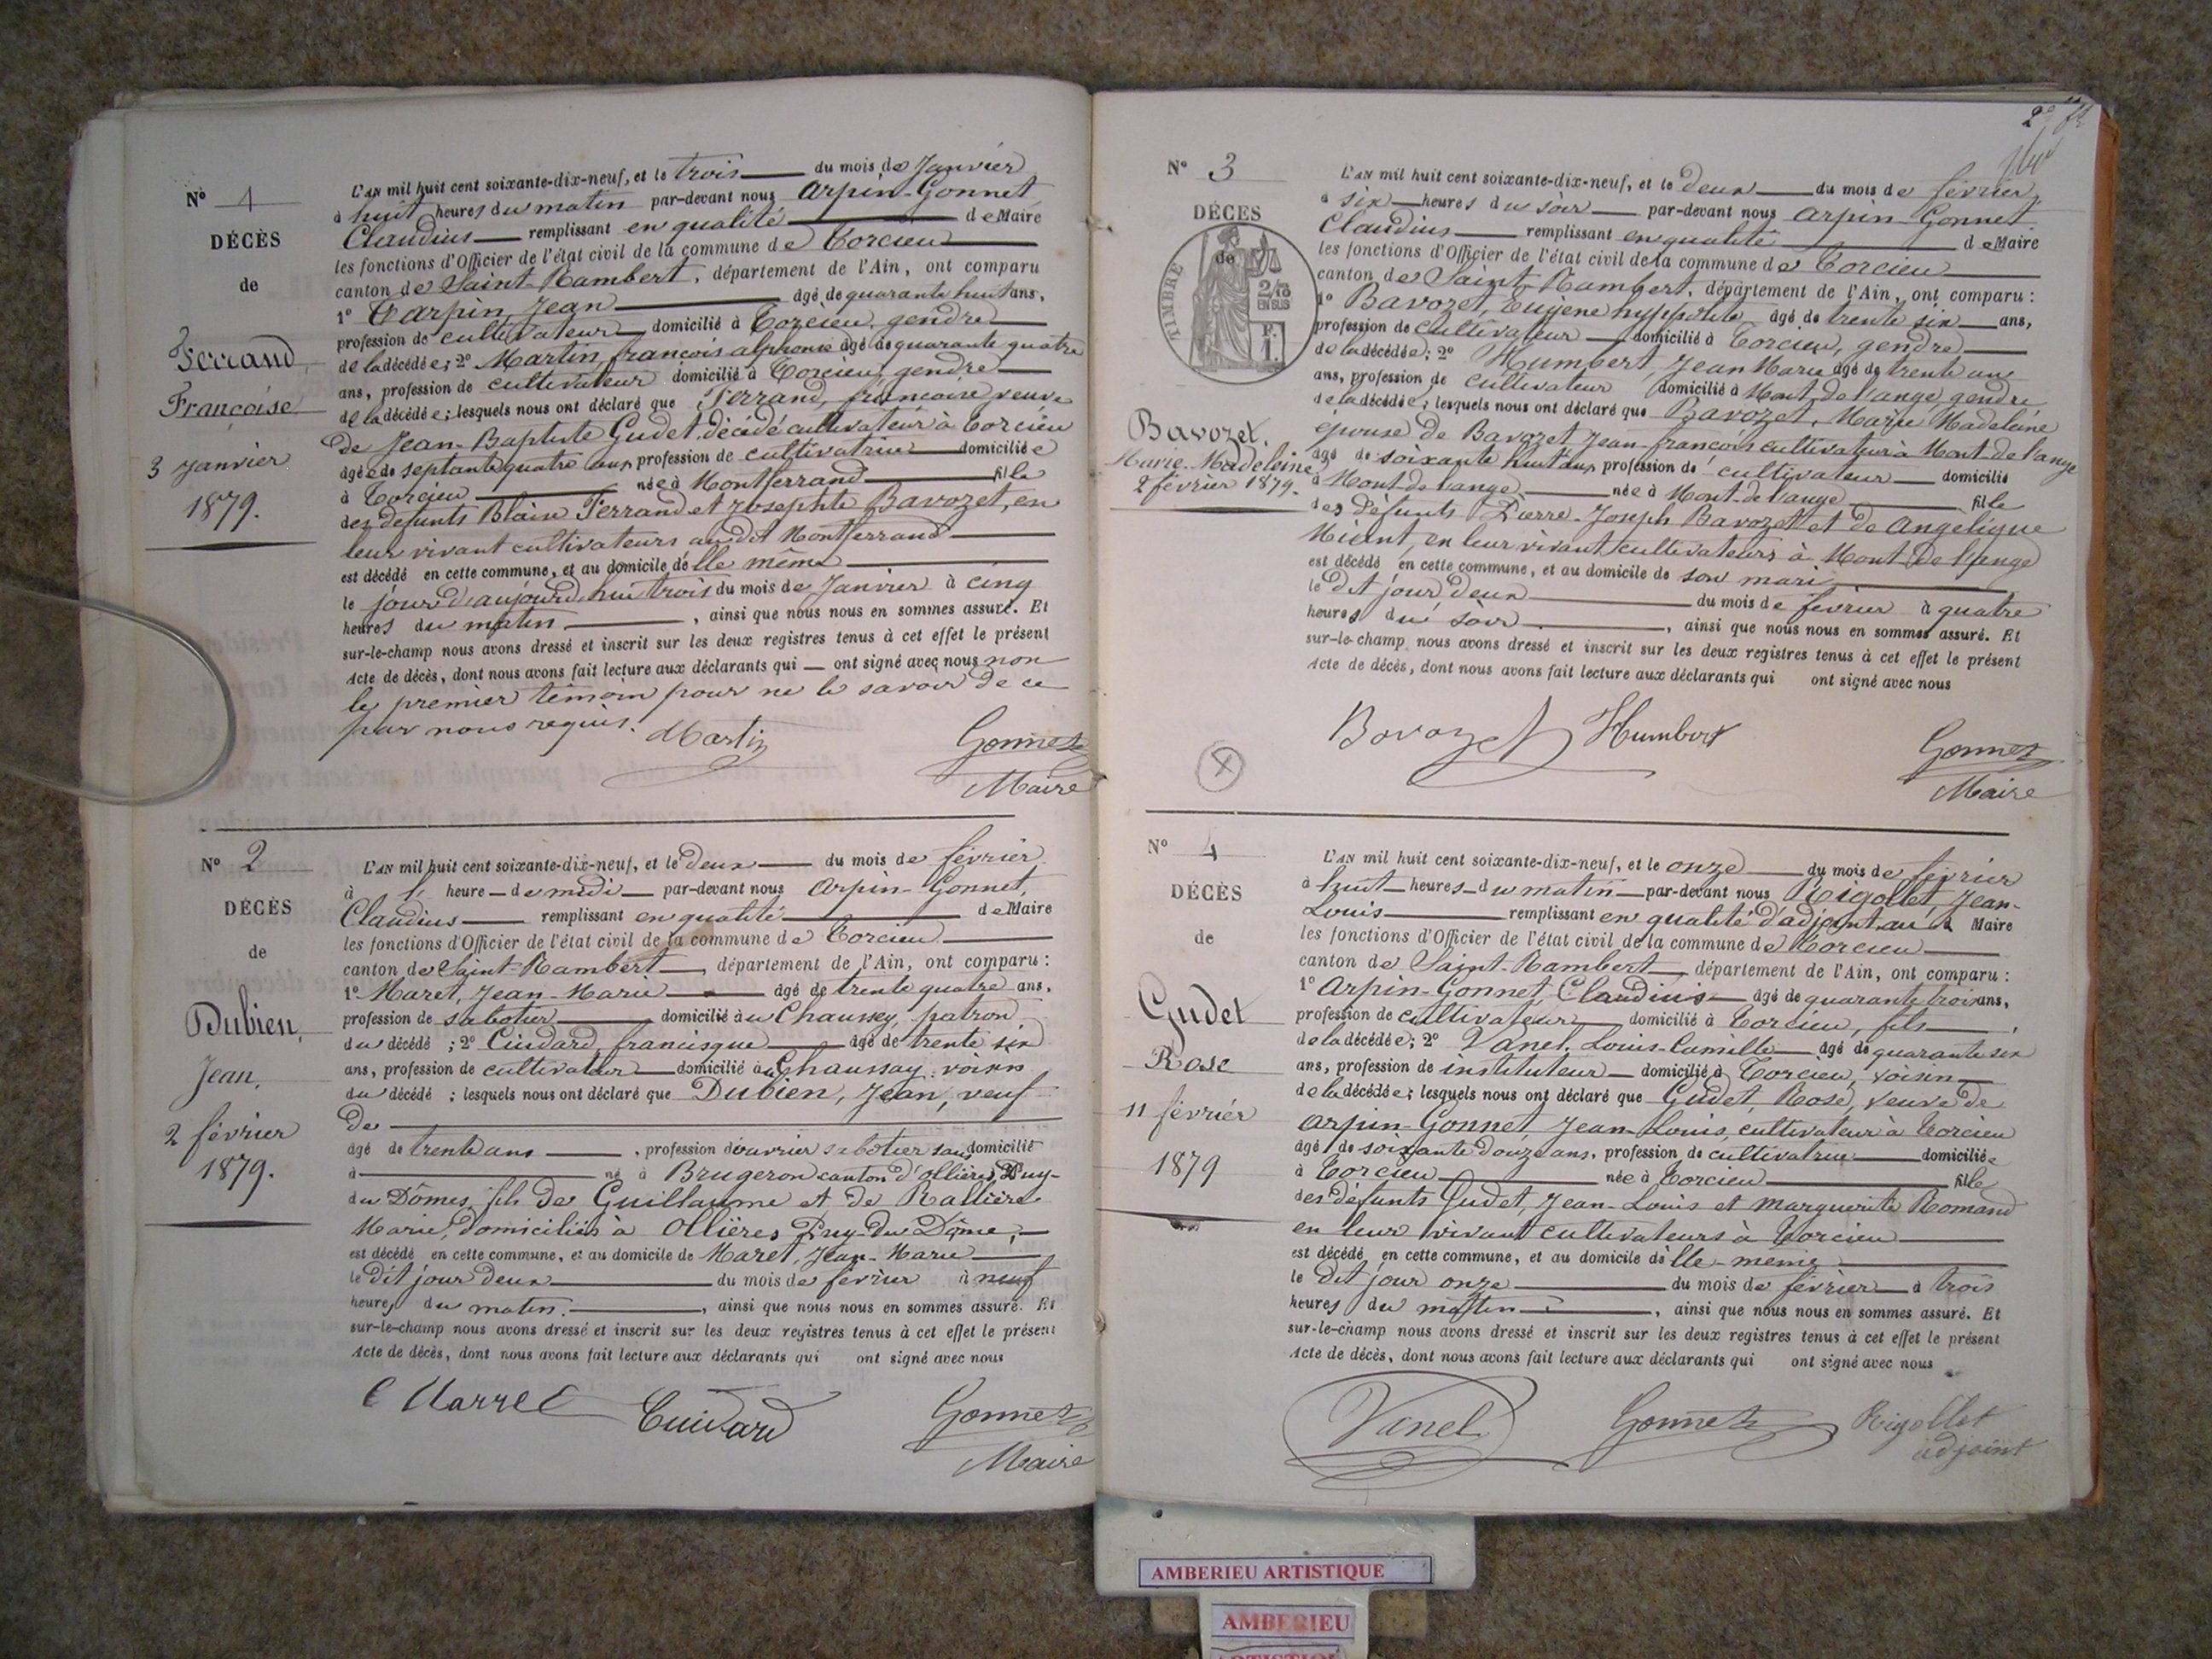 N° 1
DÉCÈS
de
Ferrand
Françoise
3 Janvier
1879.
L'AN mil huit cent soixante-dix-neuf, et le trois du mois de Janvier
à huit heures du matin par-devant nous Arpin-Gonnet
Claudius remplissant en qualité de Maire
les fonctions d'Officier de l'état civil de la commune de Torcieu
canton de Saint-Rambert, département de l'Ain, ont comparu
1° Carpin, Jean âgé de quarante huit ans,
profession de cultivateur domicilié à Torcieu, gendre
de la décédée; 2° Martin, françois alphonse âgé de quarante quatre
ans, profession de cultivateur domicilié à Torcieu, gendre
de la décédée; lesquels nous ont déclaré que Ferrand, francoise veuve
de Jean-Baptiste Gudet, décédé cultivateur à Torcieu
âgée de septante quatre ans, profession de cultivatrice domiciliée
à Torcieu née à Montferrand fille
des défunts Blaise Ferrand et Josephte Bavozet, en
leur vivant cultivateurs au dit Montferrand
est décédé en cette commune, et au domicile d'elle même
le jour d'aujourd'hui trois du mois de Janvier à cinq
heures du matin, ainsi que nous nous en sommes assuré. Et
sur-le-champ nous avons dressé et inscrit sur les deux registres tenus à cet effet le présent
Acte de décès, dont nous avons fait lecture aux déclarants qui ont signé avec nous non
le premier témoin pour ne le savoir de ce
par nous requis.
Martin
Gonnet
Maire
N° 2
DÉCÈS
de
Dubien,
Jean,
2 février
1879.
L'AN mil huit cent soixante-dix-neuf, et le deux du mois de février
à heure de midi par-devant nous Arpin-Gonnet,
Claudius remplissant en qualité de Maire
les fonctions d'Officier de l'état civil de la commune de Torcieu
canton de Saint-Rambert, département de l'Ain, ont comparu :
1° Maret, Jean-Marie âgé de trente quatre ans,
profession de sabotier domicilié au Chaussey, patron
du décédé ; 2° Cuidard, francisque âgé de trente six
ans, profession de cultivateur domicilié au Chaussay, voisin
du décédé ; lesquels nous ont déclaré que Dubien, Jean, veuf
de
âgé de trente ans, profession d'ouvrier sabotier sans domicilié
à né à Brugeron canton d'Ollières, Puy-
du Dômes, fils de Guillaume et de Rallière
Marie, domiciliés à Ollières Puy-du Dôme,
est décédé en cette commune, et au domicile de Maret, Jean-Marie
le dit jour deux du mois de février à neuf
heures du matin, ainsi que nous nous en sommes assuré. Et
sur-le-champ nous avons dressé et inscrit sur les deux registres tenus à cet effet le présent
Acte de décès, dont nous avons fait lecture aux déclarants qui ont signé avec nous
Cuidard
Gonnet
Maire
N° 3
DÉCÈS
de
TIMBRE
2/10
EN SUS
F.
1.
Bavozet,
Marie-Madeleine
2 février 1879.
L'AN mil huit cent soixante-dix-neuf, et le deux du mois de février,
à six heures du soir par-devant nous Arpin-Gonnet
Claudius remplissant en qualité de Maire
les fonctions d'Officier de l'état civil de la commune de Torcieu
canton de Saint-Rambert, département de l'Ain, ont comparu :
1° Bavozet, Eugène hyppolite âgé de trente six ans,
profession de cultivateur domicilié à Torcieu, gendre
de la décédée; 2° Humbert, Jean Marie âgé de trente un
ans, profession de cultivateur domicilié à Mont de l'ange, gendre
de la décédée; lesquels nous ont déclaré que Bavozet, Marie Madeleine
épouse de Bavozet Jean-françois cultivateur à Mont de l'ange
âgé de soixante huit ans, profession de cultivateur domicilié
à Mont de l'ange née à Mont-de l'ange fille
des défunts Pierre-Joseph Bavozet et de Angelique
en leur vivant cultivateurs à Mont De l'ange
est décédé en cette commune, et au domicile de son mari
le dit jour deux du mois de février à quatre
heures du soir, ainsi que nous nous en sommes assuré. Et
sur-le-champ nous avons dressé et inscrit sur les deux registres tenus à cet effet le présent
Acte de décès, dont nous avons fait lecture aux déclarants qui ont signé avec nous
Bavozet
Humbert
Gonnet
Maire
N° 4
DÉCÈS
de
Gudet
Rose
11 février
1879
L'AN mil huit cent soixante-dix-neuf, et le onze du mois de février
à huit heures du matin par-devant nous Rigollet, Jean-
Louis remplissant en qualité d'adjoint au Maire
les fonctions d'Officier de l'état civil de la commune de Torcieu
canton de Saint-Rambert, département de l'Ain, ont comparu :
1° Arpin-Gonnet, Claudius âgé de quarante trois ans,
profession de cultivateur domicilié à Torcieu, fils
de la décédée; 2° Vanel, Louis-Camille âgé de quarante six
ans, profession de instituteur domicilié à Torcieu, voisin
de la décédée; lesquels nous ont déclaré que Gudet, Rose, veuve de
Arpin-Gonnet, Jean-Louis, cultivateur à Torcieu
âgé de soixante douze ans, profession de cultivatrice domiciliée
à Torcieu née à Torcieu fille
des défunts Gudet, Jean-Louis et Marguerite Romand
en leur vivant cultivateurs à Torcieu
est décédé en cette commune, et au domicile d'elle-meme
le dit jour onze du mois de février à trois
heures du matin, ainsi que nous nous en sommes assuré. Et
sur-le-champ nous avons dressé et inscrit sur les deux registres tenus à cet effet le présent
Acte de décès, dont nous avons fait lecture aux déclarants qui ont signé avec nous
Vanel
Gonnet
Rigollet
adjoint
AMBERIEU ARTISTIQUE
AMBERIEU
ARTISTIQUE